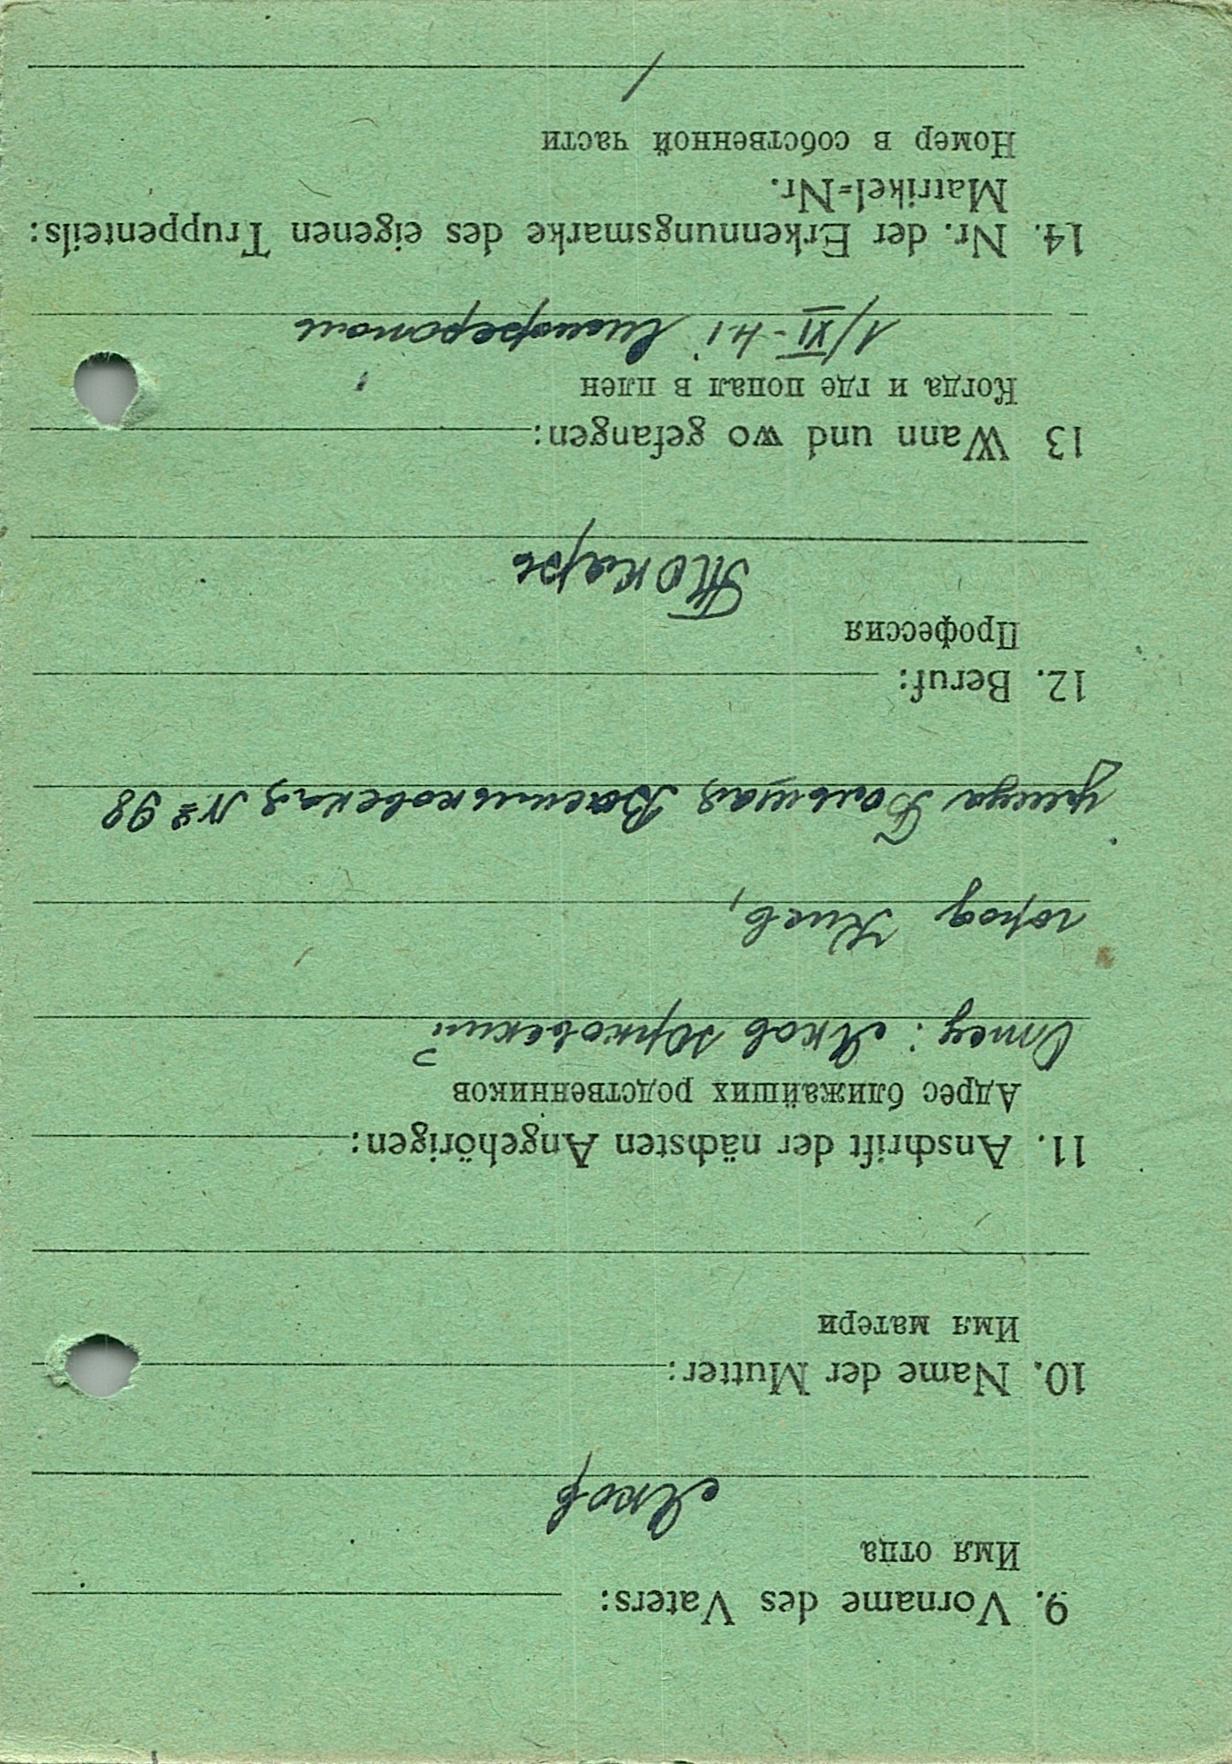 9. Vorname des Vaters:
Имя отца
Яков
10. Name der Mutter:
Имя матери
11. Anschrift der nächsten Angehörigen:
Адрес ближайших родственников
Отец: Яков Юрковский
город Киев,
улица Большая Васильковская №98
12. Beruf:
Профессия
Токарь
13 Wann und wo gefangen:
Когда и где попал в плен
1/XI-41 Симферополь
14. Nr. der Erkennungsmarke des eigenen Truppenteils:
Matrikel=Nr.
Номер в собственной части
/